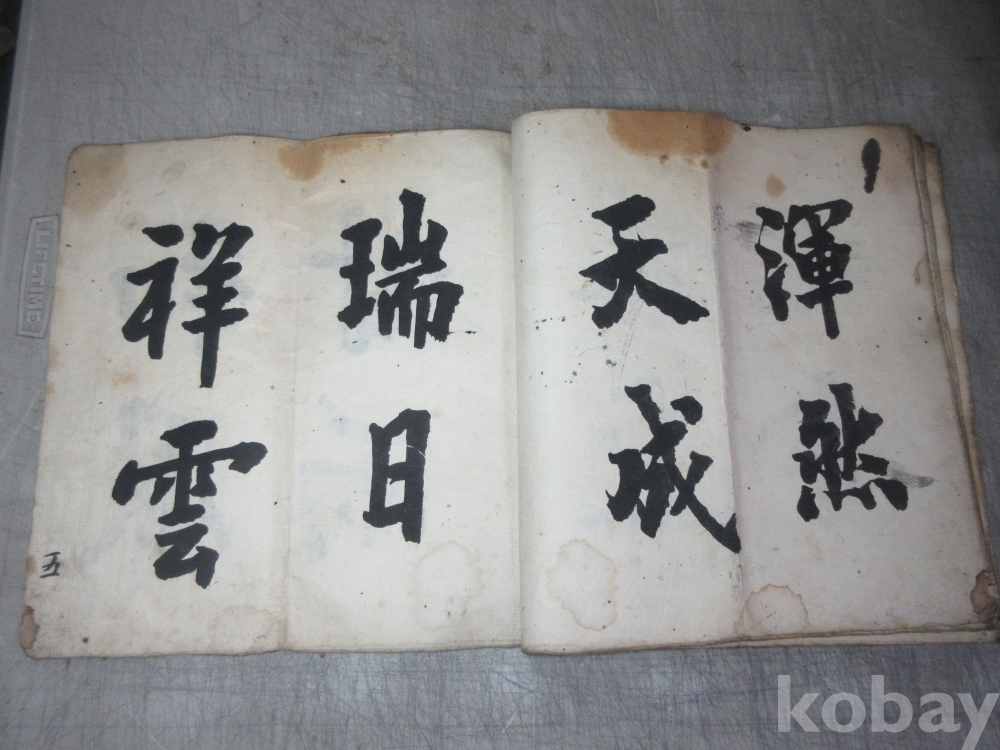 渾然
天成
瑞日
祥雲
五
LIFETIME
kobay